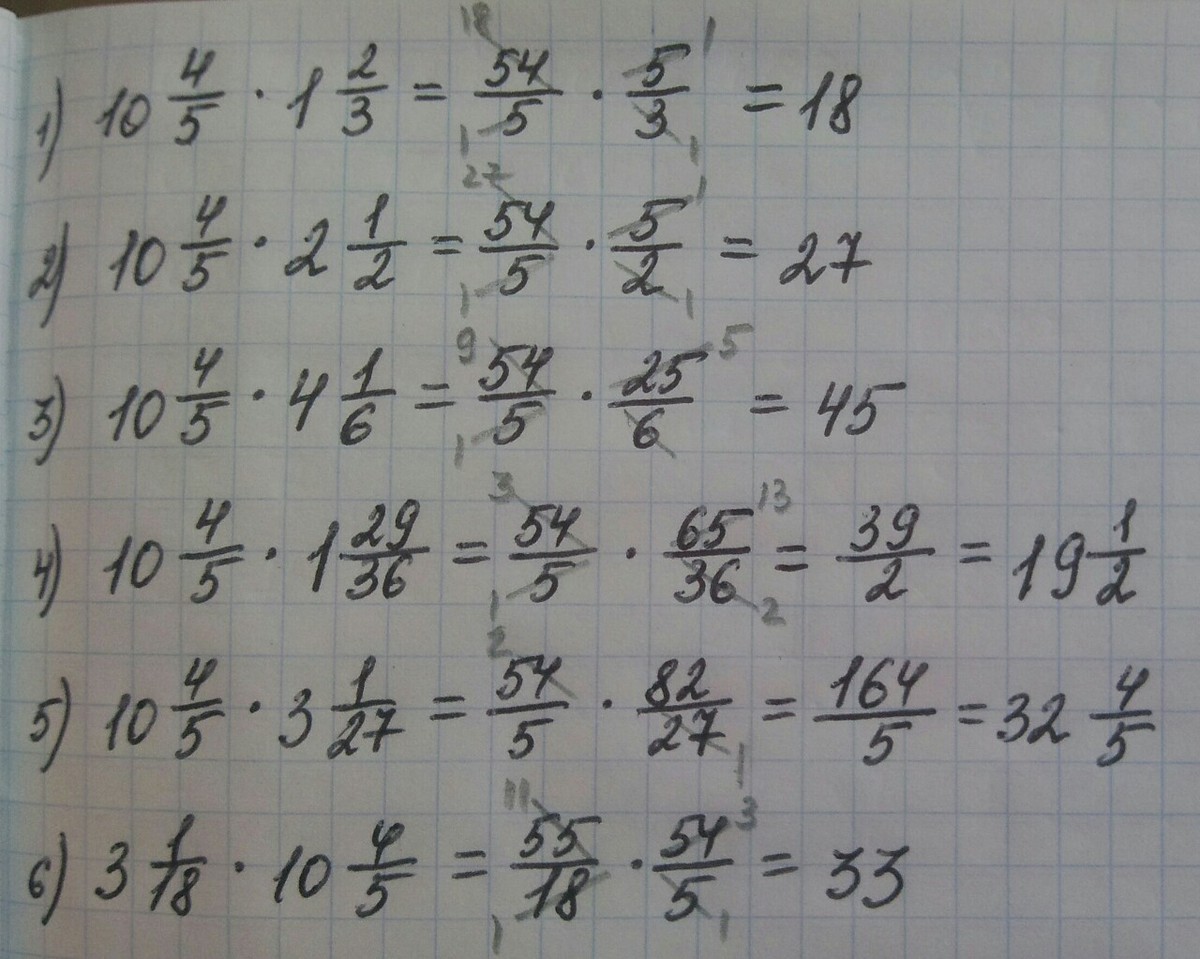 1) 10 4/5 · 1 2/3 = 54/5 · 5/3 = 18
2) 10 4/5 · 2 1/2 = 54/5 · 5/2 = 27
3) 10 4/5 · 4 1/6 = 54/5 · 25/6 = 45
4) 10 4/5 · 1 29/36 = 54/5 · 65/36 = 39/2 = 19 1/2
5) 10 4/5 · 3 1/27 = 54/5 · 82/27 = 164/5 = 32 4/5
6) 3 1/18 · 10 4/5 = 55/18 · 54/5 = 33